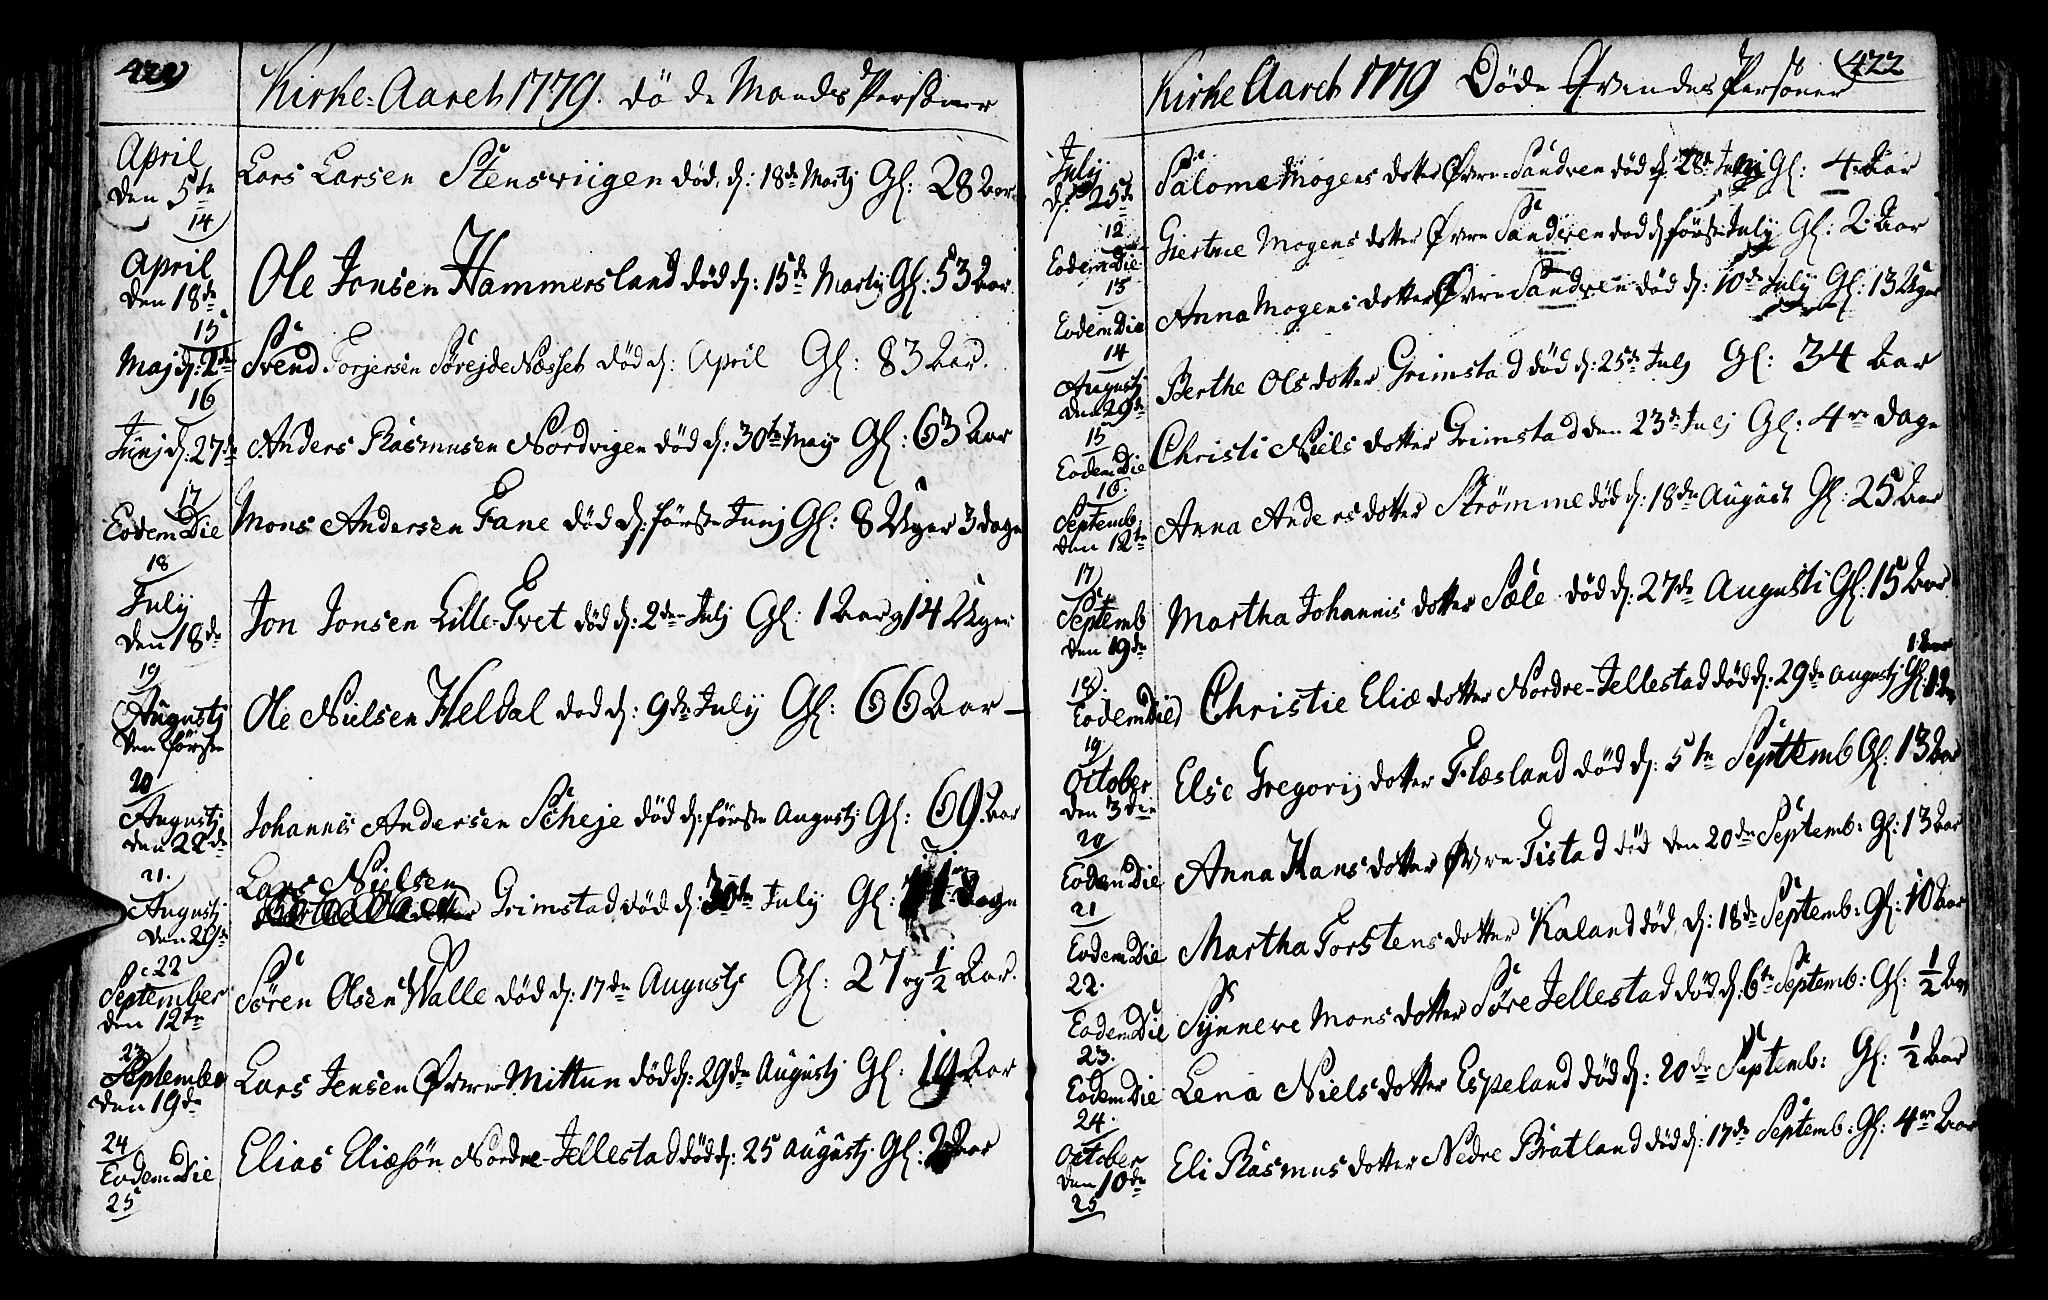 422
Kirke-Aaret 1779. døde Mands Personer
April den 5te 14 Lars Larsen Stensviigen død d: 18de Martj Gl: 28 Aar
April den 18de 15 Ole Jonsen Hammersland død d: 15de Martij Gl: 53 Aar
Maj d: 2de 16 Svend Torjersen Sørejde Næsset død d: April Gl: 83 Aar.
Junj d: 27de 17 Anders Rasmusen Nordvigen død d: 30te Maij Gl: 63 Aar
Eodem Die 18 Mons Andersen Fane død d: første Junj Gl: 8 Uger 3 dage
July den 18de 19 Jon Jonsen Lille-Tvet død d: 2den July Gl: 1 Aar og 14 Uger
Augustj den første 20 Ole Nielsen Heldal død d: 9de July Gl: 66 Aar
Augustj den 22de 21. Johannis Andersen Scheje død d: første Augustj Gl: 69. Aar
Augustj den 29de 22 Lars Nielsen Grimstad død d: 30te July Gl: 11 dage
September den 12te 23 Søren Olsen Walle død d: 17de Augustj Gl: 27 og 1/2 Aar.
September den 19de 24 Lars Jensen Øvere Mittun død d: 29de Augustj Gl: 19 Aar
Eodem Die 25 Elias Eliæsøn Nordre-Jellestad død d: 25 Augustj Gl: Aar
422
Kirke Aaret 1779 Døde Qvindes Personer
July d: 25de 12 Salome Mogens dotter Øvre-Sandven død d: 28de Gl: 4 Aar
Eodem Die 13 Giertrue Mogens dotter Øvre Sandven død d: første July Gl: 2 Aar
Eodem Die 14 Anna Mogens dotter Øvre Sandven død d: 10de July Gl: 13 Uger
Augustj den 29de 15 Berthe Ols dotter Grimstad død d: 25de July Gl: 34 Aar
Eodem Die 16. Christi Niels dotter Grimstad den 23de July Gl: 4re dage
Septemb. den 12te 17 Anna Anders dotter Strømme død d: 18de August Gl: 25 Aar
Septemb den 19de 18. Martha Johannis dotter Sæle død d: 27de Augusti Gl: 15 Aar
Eodem Die 19 Christie Eliæ dotter Nordre-Jellestad død d: 29de Augustj Gl: 1 Aar
October den 3die 20 Else Gregorij dotter Flæsland død d: 5te Septtemb Gl: 13 Aar
Eodem Die 21 Anna Hans dotter Øvre Tistad død den 20de Septemb: Gl: 13 Aar
Eodem Die 22. Martha Torstens dotter Kaland død d: 18de Septemb: Gl: 10 Aar
Eodem Die 23. Synneve Mons dotter Søre Jellestad død d: 6te Septemb: Gl: 1/2 Aar
Eodem Die 24. Lena Niels dotter Espeland død d: 20de Septemb: Gl: 1/2 Aar
October den 10de 25 Eli Rasmus dotter Nedre Bratland død d: 17de Septemb: Gl: 4re Aar